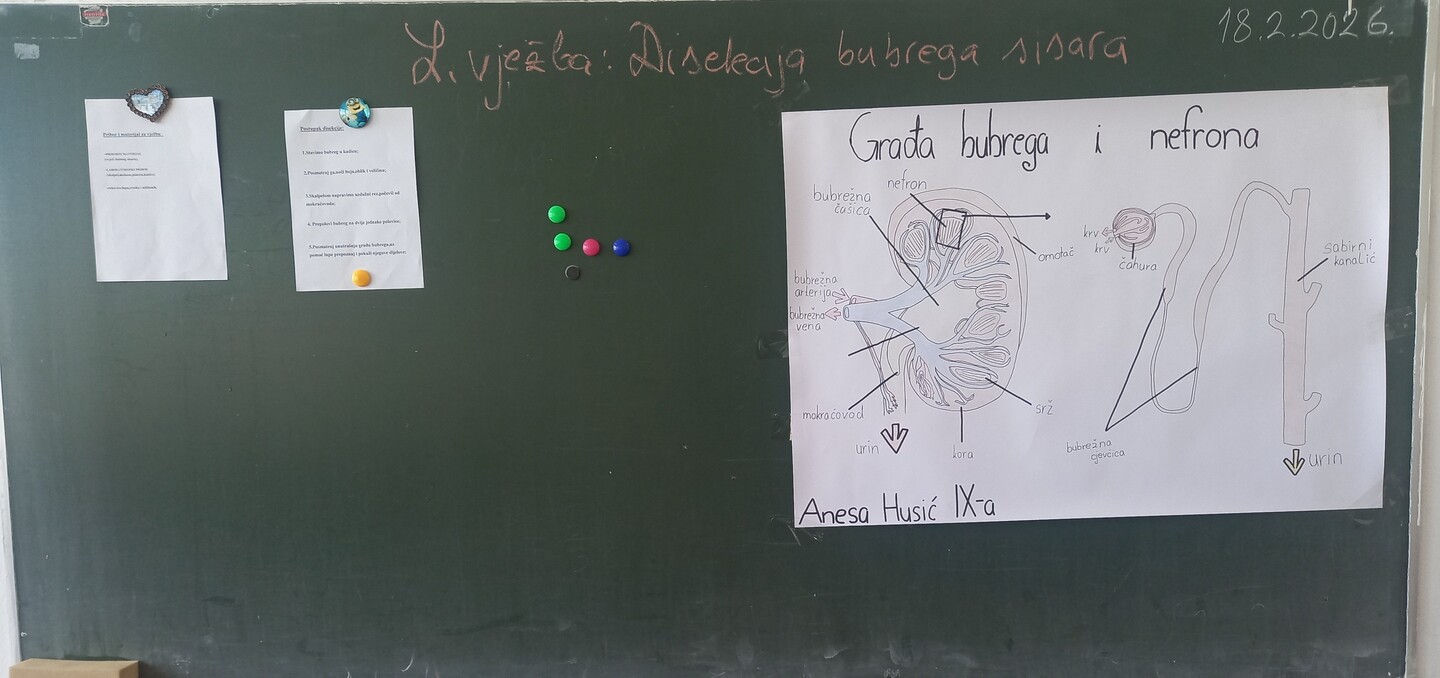 L. vježba: Disekcija bubrega sisara
18.2.2026.
Pribor i materijal za vježbu:
Postupak disekcije:
1.Stavimo bubreg u kadicu;
2.Posmatraj ga,uoči boju,oblik i veličinu;
3.Skalpelom napravimo uzdužni rez,počevši od
mokraćovoda;
4. Prepolovi bubreg na dvije jednake polovine;
5.Posmatraj unutrašnju građu bubrega,uz
pomoć lupe prepoznaj i pokaži njegove dijelove;
Građa bubrega i nefrona
nefron
bubrežna
čašica
omotač
bubrežna
arterija
bubrežna
vena
mokraćovod
urin
kora
srž
krv
krv
čahura
sabirni
kanalić
bubrežna
cjevčica
urin
Anesa Husić IX-a